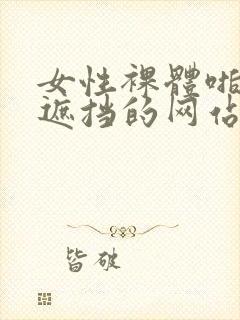 女性裸體啪
遮挡的网佔
皆破